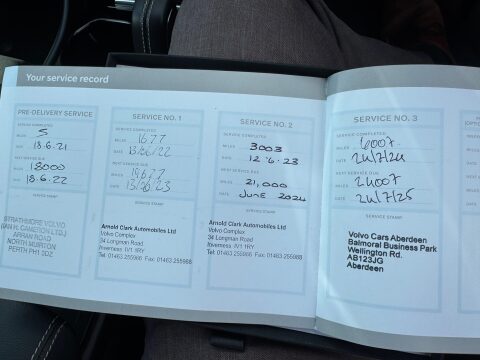 Your service record
PRE-DELIVERY SERVICE
SERVICE COMPLETED
MILES 5
DATE 18.6.21
NEXT SERVICE DUE
MILES 18000
DATE 18.6.22
SERVICE STAMP
STRATHMORE VOLVO
ARRAN ROAD
NORTH MUIRTON
PERTH PH1 3DZ
SERVICE NO. 1
SERVICE COMPLETED
MILES 1677
DATE 13/06/22
NEXT SERVICE DUE
MILES 19677
DATE 13/06/23
SERVICE STAMP
Arnold Clark Automobiles Ltd
Volvo Complex
34 Longman Road
Inverness IV1 1RY
Tel: 01463 255966 Fax: 01463 255988
SERVICE NO. 2
SERVICE COMPLETED
MILES 3003
DATE 12.6.23
NEXT SERVICE DUE
MILES 21,000
DATE JUNE 2024
SERVICE STAMP
Arnold Clark Automobiles Ltd
Volvo Complex
34 Longman Road
Inverness IV1 1RY
Tel: 01463 255966 Fax: 01463 255988
SERVICE NO. 3
SERVICE COMPLETED
MILES 6007
DATE 24/7/24
NEXT SERVICE DUE
MILES 24007
DATE 24/7/25
SERVICE STAMP
Volvo Cars Aberdeen
Balmoral Business Park
Wellington Rd.
AB123JG
Aberdeen